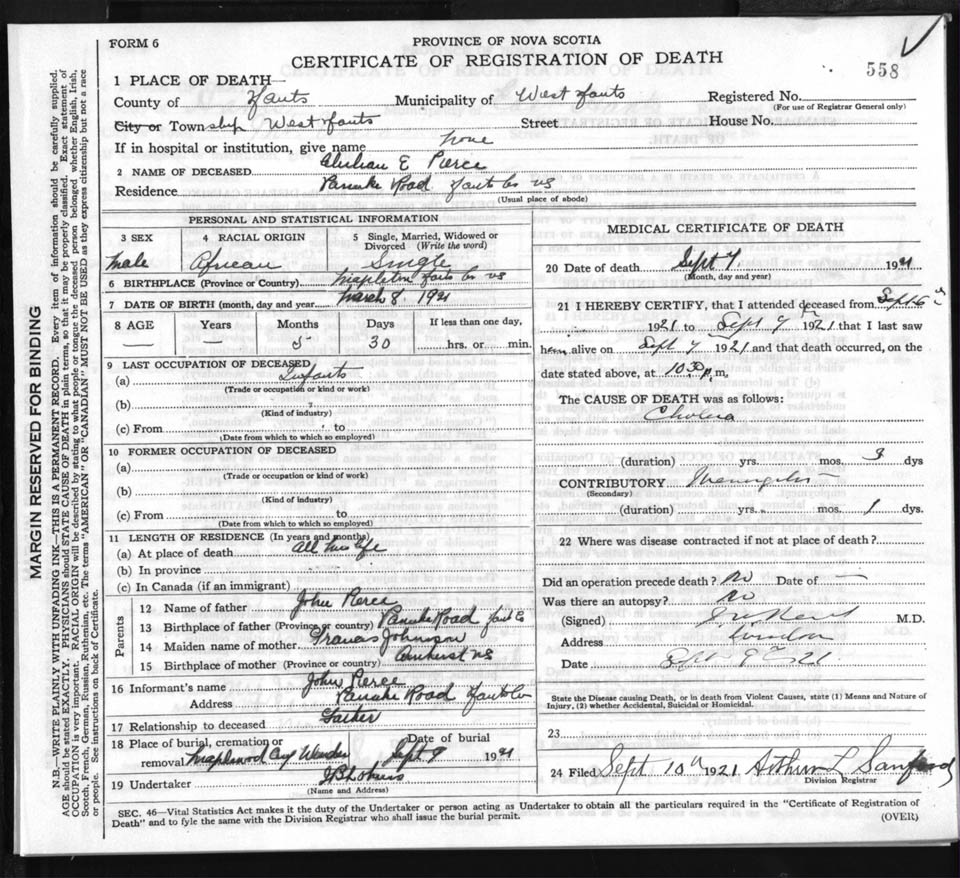 FORM 6
PROVINCE OF NOVA SCOTIA
CERTIFICATE OF REGISTRATION OF DEATH
558
1 PLACE OF DEATH
County of Hants Municipality of West Hants Registered No.
(For use of Registrar General only)
City or Township West Hants Street House No.
If in hospital or institution, give name None
2 NAME OF DECEASED E Pierce
Residence Panuke Road Hants Co NS
(Usual place of abode)
PERSONAL AND STATISTICAL INFORMATION
3 SEX 4 RACIAL ORIGIN 5 Single, Married, Widowed or Divorced (Write the word)
Male African Single
6 BIRTHPLACE (Province or Country) Mapleton Hants Co NS
7 DATE OF BIRTH (month, day and year) March 8. 1921
8 AGE Years Months Days If less than one day,
— 5 30 hrs. or min.
9 LAST OCCUPATION OF DECEASED
(a) Infants
(Trade or occupation or kind or work)
(b)
(Kind of industry)
(c) From to
(Date from which to which so employed)
10 FORMER OCCUPATION OF DECEASED
(a)
(Trade or occupation or kind of work)
(b)
(Kind of industry)
(c) From to
(Date from which to which so employed)
11 LENGTH OF RESIDENCE (In years and months)
(a) At place of death All his life
(b) In province
(c) In Canada (if an immigrant)
Parents
12 Name of father John Pierce
13 Birthplace of father (Province or country) Panuke Road Hants Co
14 Maiden name of mother Johnson
15 Birthplace of mother (Province or country) Amherst NS
16 Informant's name John Pierce
Address Panuke Road Hants Co
17 Relationship to deceased Father
18 Place of burial, cremation or removal Maplewood Cmy Windsor Date of burial Sept 9 1921
19 Undertaker
(Name and Address)
MEDICAL CERTIFICATE OF DEATH
20 Date of death Sept 7 1921
(Month, day and year)
21 I HEREBY CERTIFY, that I attended deceased from Sept 6
1921 to Sept 7 1921 that I last saw
him alive on Sept 7 1921 and that death occurred, on the
date stated above, at 10 30 p.m.
The CAUSE OF DEATH was as follows:
Cholera
(duration) yrs. mos. 3 dys
CONTRIBUTORY
(Secondary)
(duration) yrs. mos. 1 dys.
22 Where was disease contracted if not at place of death?
Did an operation precede death? No Date of —
Was there an autopsy? No
(Signed) M.D.
Address
Date Sept 9 21
State the Disease causing Death, or in death from Violent Causes, state (1) Means and Nature of
Injury, (2) whether Accidental, Suicidal or Homicidal.
23
24 Filed Sept 10th 1921 Arthur L Sanford
Division Registrar
SEC. 46—Vital Statistics Act makes it the duty of the Undertaker or person acting as Undertaker to obtain all the particulars required in the "Certificate of Registration of
Death" and to fyle the same with the Division Registrar who shall issue the burial permit.
(OVER)
MARGIN RESERVED FOR BINDING
N.B.—WRITE PLAINLY WITH UNFADING INK—THIS IS A PERMANENT RECORD. Every item of information should be carefully supplied.
AGE should be stated EXACTLY. PHYSICIANS should STATE CAUSE OF DEATH in plain terms, so that it may be properly classified. Exact statement of
OCCUPATION is very important. RACIAL ORIGIN will be described by stating to what people or tongue the deceased person belonged whether English, Irish,
Scotch, French, German, Russian, Ruthenian, etc. The terms "AMERICAN" OR "CANADIAN" MUST NOT BE USED as they express citizenship but not a race
or people. See instructions on back of Certificate.